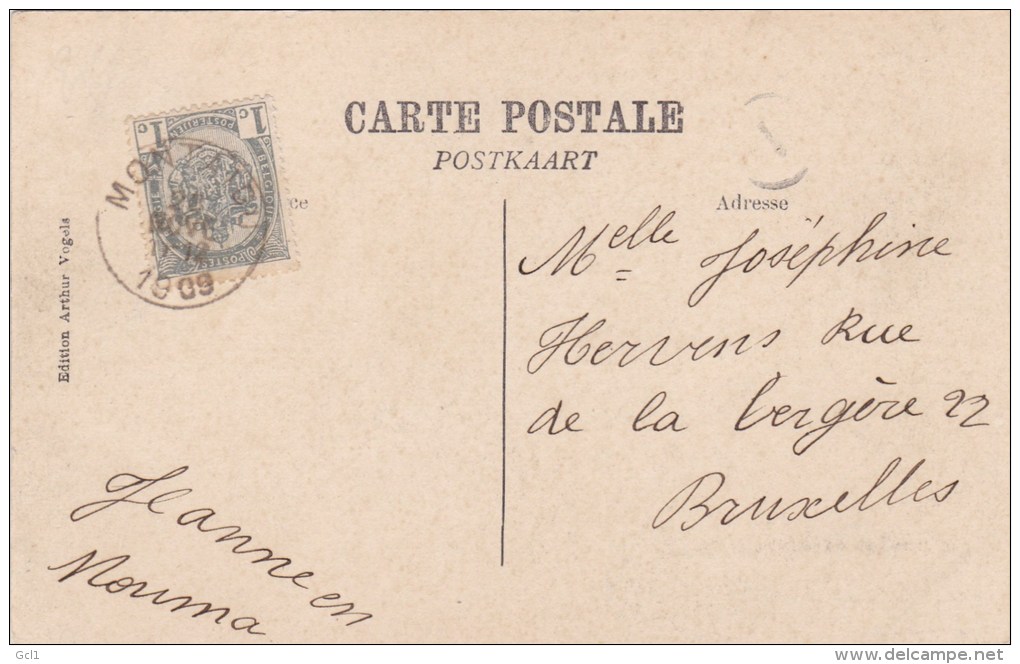 CARTE POSTALE
POSTKAART
Adresse
1 c
1 c
BELGIQUE
POSTES
MONTAIGU
1909
ce
Edition Arthur Vogels
Melle Joséphine
Hervens Rue
de la bergère 22
Bruxelles
Jeanne en
Mouma
Gcl1
www.delcampe.net